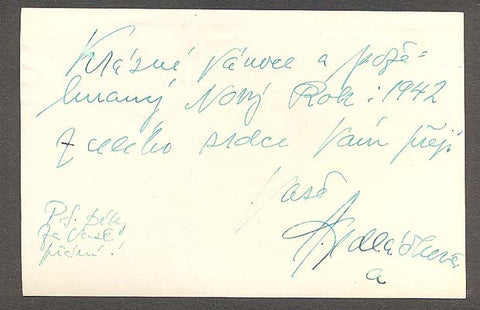 Krásné Vánoce a pože-
hnaný Nový Rok: 1942
z celého srdce Vám přeji
Vaše
P.S. Díky
za Vaše
přání!